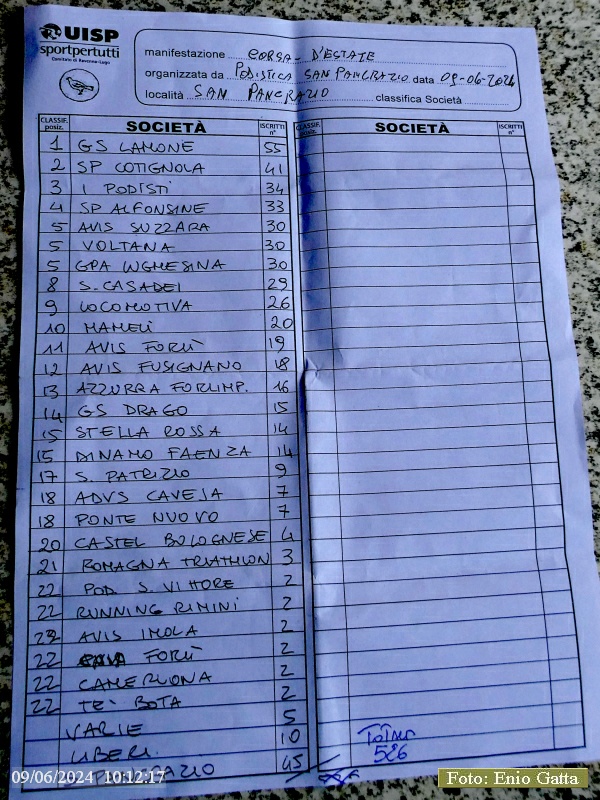 UISP
sportpertutti
Comitato di Ravenna-Lugo
manifestazione CORSA D'ESTATE
organizzata da PODISTICA SAN PANCRAZIO data 09-06-2024
località SAN PANCRAZIO classifica Società
CLASSIF. posiz. SOCIETÀ ISCRITTI n° CLASSIF. posiz. SOCIETÀ ISCRITTI n°
1 GS LAMONE 55
2 SP COTIGNOLA 41
3 I PODISTI 34
4 SP ALFONSINE 33
5 AVIS SUZZARA 30
5 VOLTANA 30
5 GPA LUGHESINA 30
8 S. CASADEI 29
9 LOCOMOTIVA 26
10 MAMELI 20
11 AVIS FORLÌ 19
12 AVIS FUSIGNANO 18
13 AZZURRA FORLIMP. 16
14 GS DRAGO 15
15 STELLA ROSSA 14
15 DINAMO FAENZA 14
17 S. PATRIZIO 9
18 ADVS CAVEJA 7
18 PONTE NUOVO 7
20 CASTEL BOLOGNESE 4
21 ROMAGNA TRIATHLON 3
22 POD S. VITTORE 2
22 RUNNING RIMINI 2
22 AVIS IMOLA 2
22 FORLÌ 2
22 CAMERLONA 2
22 TRE BOTA 2
VARIE 5
LIBERI 10
PANCRAZIO 45
TOTALE
526
09/06/2024 10:12:17
Foto: Enio Gatta